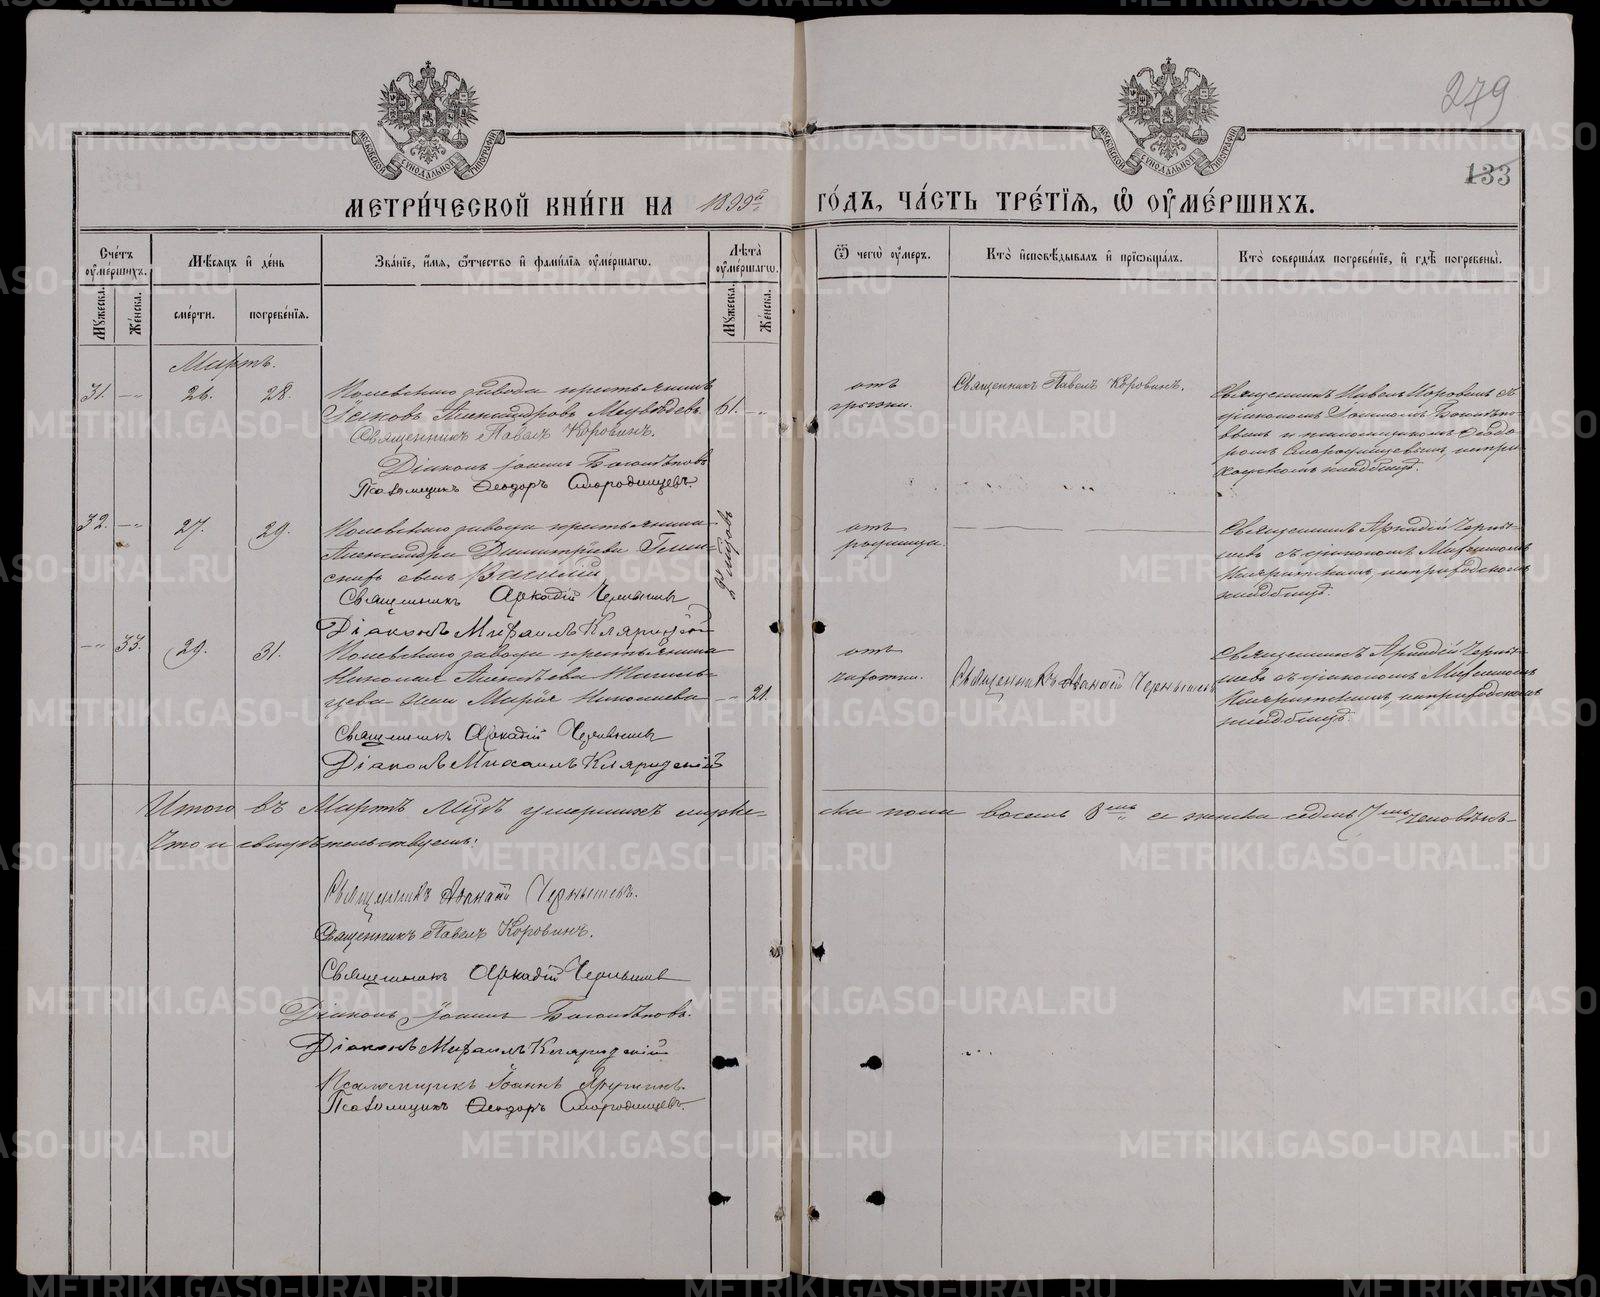 279
133
МЕТРИ́ЧЕСКОЙ КНИ́ГИ НА 1899й ГО́ДЪ, ЧА́СТЬ ТРЕ́ТІѦ, Ѽ ОУМЕ́РШИХЪ.
Сче́тъ оуме́ршихъ.
Мꙋжеска.
Же́нска.
Мѣ́сѧцъ и де́нь
сме́рти.
погребе́нїѧ.
Зва́нїе, и́мѧ, ѻ҆́тчество и фами́лїѧ оуме́ршагѡ.
Лѣ́та оуме́ршагѡ.
Мꙋжеска.
Же́нска.
Ѿ чегѡ̀ оу́меръ.
Кто̀ и҆сповѣ́дывалъ и прїѡбща́лъ.
Кто̀ соверша́лъ погребе́нїе, и гдѣ̀ погребены̀.
Мартъ.
31. 26. 28. Полевскаго завода крестьянинъ
Іаковъ Александровъ Медвѣдевъ. 61.
Священникъ Павелъ Коровинъ.
Діаконъ Іоаннъ Боголѣповъ
Псаломщикъ Ѳеодоръ Смородинцевъ.
отъ
грыжи.
Священникъ Павелъ Коровинъ.
Священникъ Павелъ Коровинъ съ
діакономъ Іоанномъ Боголѣпо-
вымъ и псаломщикомъ Ѳеодо-
ромъ Смородинцевымъ, на при-
ходскомъ кладбищѣ.
32. 27. 29. Полевскаго завода крестьянина
Александра Димитріева
сынъ Василій
Священникъ Аркадій Чернышевъ
Діаконъ Михаилъ Кляритскій
отъ
родимца.
Священникъ Аркадій Черны-
шевъ съ діакономъ Михаиломъ
Кляритскимъ, на приходскомъ
кладбищѣ.
33. 29. 31. Полевскаго завода крестьянина
Николая Алексѣева
жена Марія Николаева 21.
Священникъ Аркадій Чернышевъ
Діаконъ Михаилъ Кляритскій
отъ
чахотки.
Священникъ Аѳанасій Чернышевъ
Священникъ Аркадій Черны-
шевъ съ діакономъ Михаиломъ
Кляритскимъ, на приходскомъ
кладбищѣ.
Итого въ Мартѣ м-цѣ умершихъ муже-ска пола восемь 8мь а женска седмь 7мь человѣкъ
Что и свидѣтельствуемъ:
Священникъ Аѳанасій Чернышевъ.
Священникъ Павелъ Коровинъ.
Священникъ Аркадій Чернышевъ
Діаконъ Іоаннъ Боголѣповъ.
Діаконъ Михаилъ Кляритскій
Псаломщикъ Іоаннъ Ярушинъ.
Псаломщикъ Ѳеодоръ Смородинцевъ.
METRIKI.GASO-URAL.RU